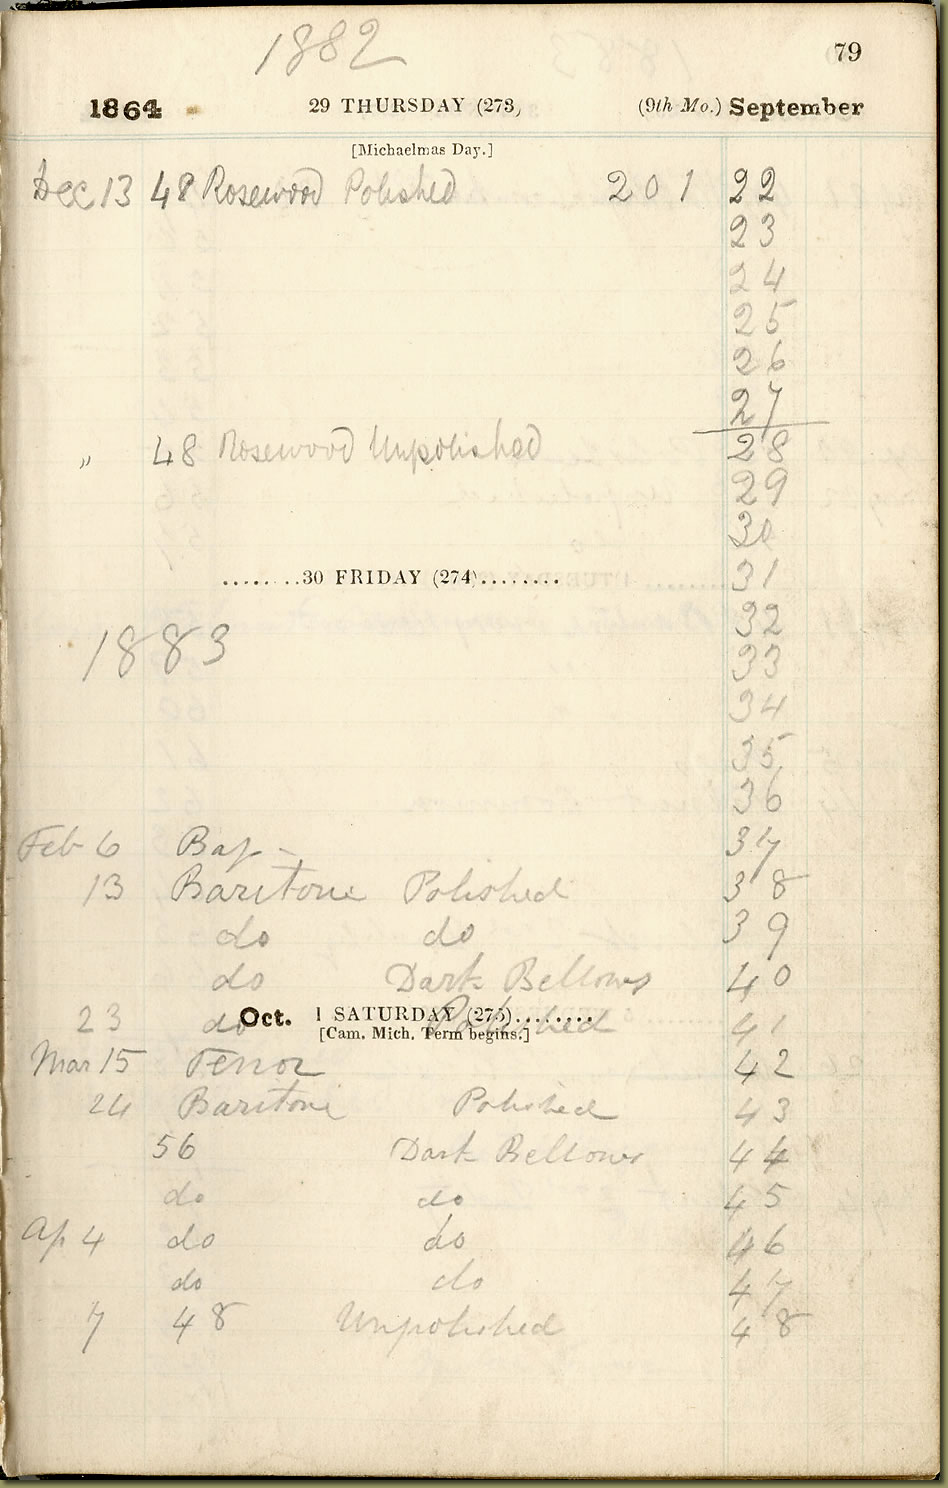 1882
79
1864 29 THURSDAY (273) (9th Mo.) September
[Michaelmas Day.]
Dec 13 48 Rosewood Polished 20122
23
24
25
26
27
„ 48 Rosewood Unpolished 28
29
30
........30 FRIDAY (274)........ 31
32
1883 33
34
35
36
Feb 6 37
13 Baritone Polished 38
do do 39
do Dark Bellows 40
23 do Polished 41
Oct. 1 SATURDAY (275)........
[Cam. Mich. Term begins.]
Mar 15 Tenor 42
24 Baritone Polished 43
56 Dark Bellows 44
do do 45
Ap 4 do do 46
do do 47
7 48 Unpolished 48